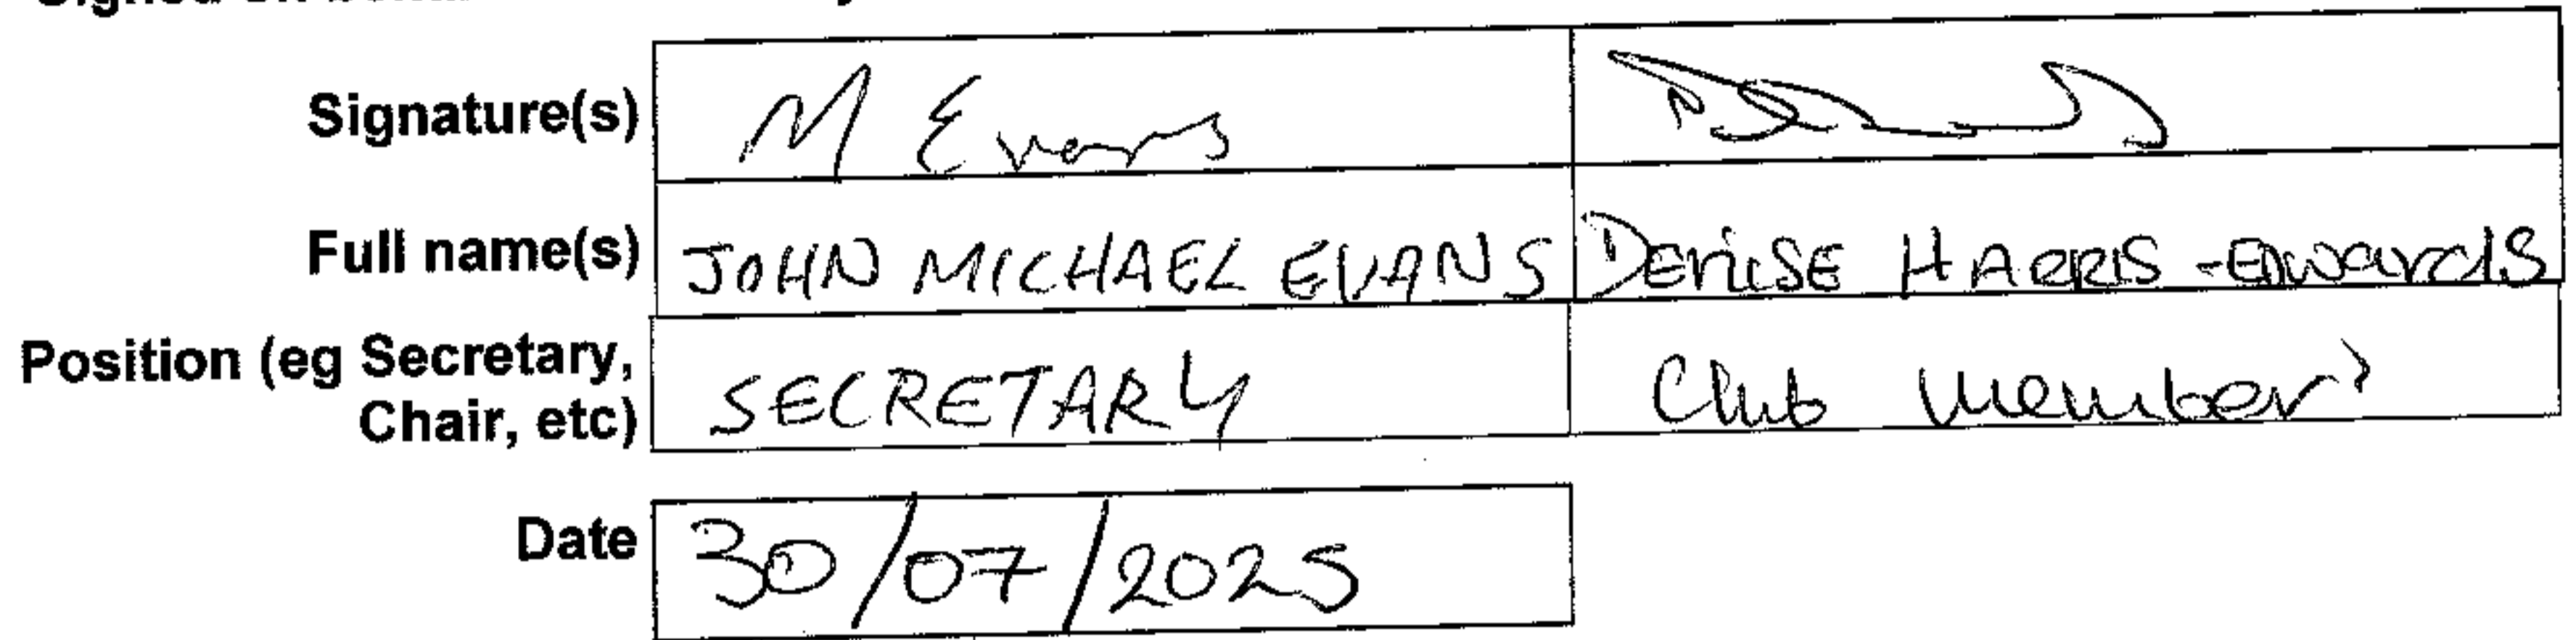 Signature(s) M Evans
Full name(s) JOHN MICHAEL EVANS DENISE HARRIS-EDWARDS
Position (eg Secretary, Chair, etc) SECRETARY Club Member
Date 30/07/2025